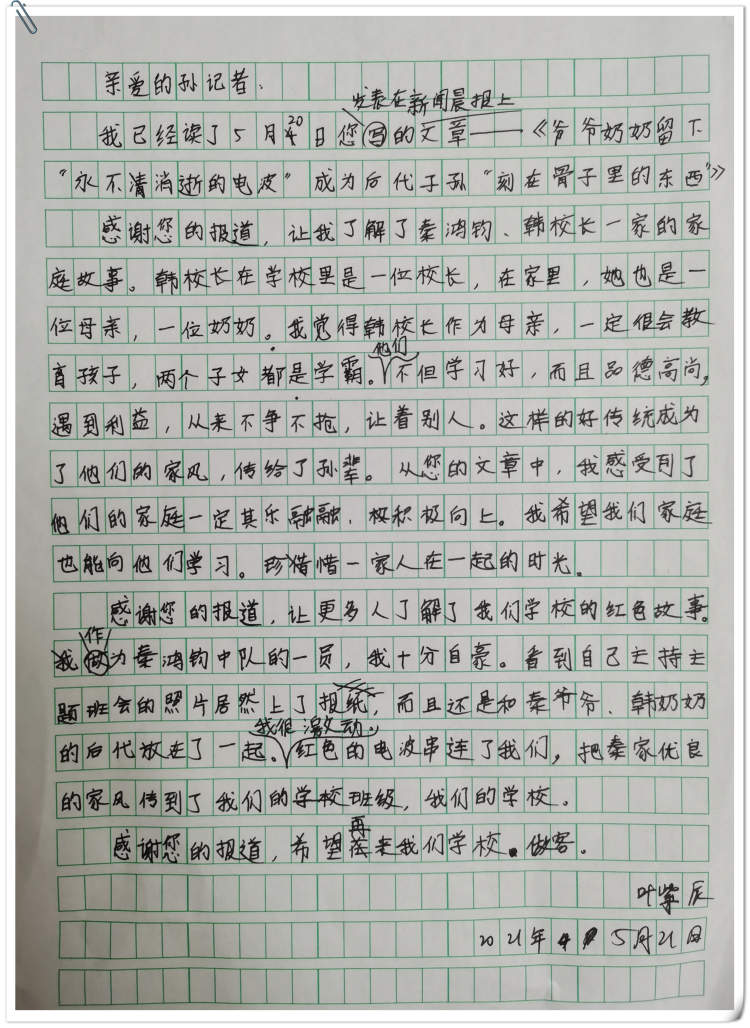 亲爱的孙记者：
发表在新闻晨报上
我已经读了5月20日您写的文章——《爷爷奶奶留下
“永不清消逝的电波”成为后代子孙“刻在骨子里的东西”》
感谢您的报道，让我了解了秦鸿钧、韩校长一家的家
庭故事。韩校长在学校里是一位校长，在家里，她也是一
位母亲，一位奶奶。我觉得韩校长作为母亲，一定很会教
育孩子，两个子女都是学霸。他们不但学习好，而且品德高尚，
遇到利益，从来不争不抢，让着别人。这样的好传统成为
了他们的家风，传给了孙辈。从您的文章中，我感受到了
他们的家庭一定其乐融融，积极向上。我希望我们家庭
也能向他们学习。珍惜一家人在一起的时光。
感谢您的报道，让更多人了解了我们学校的红色故事。
作为秦鸿钧中队的一员，我十分自豪。看到自己主持主
题班会的照片居然上了报纸，而且还是和秦爷爷、韩奶奶
的后代放在了一起。我很激动。红色的电波串连了我们，把秦家优良
的家风传到了我们的班级，我们的学校。
感谢您的报道，希望再来我们学校做客。
叶 辰
2021年5月21日